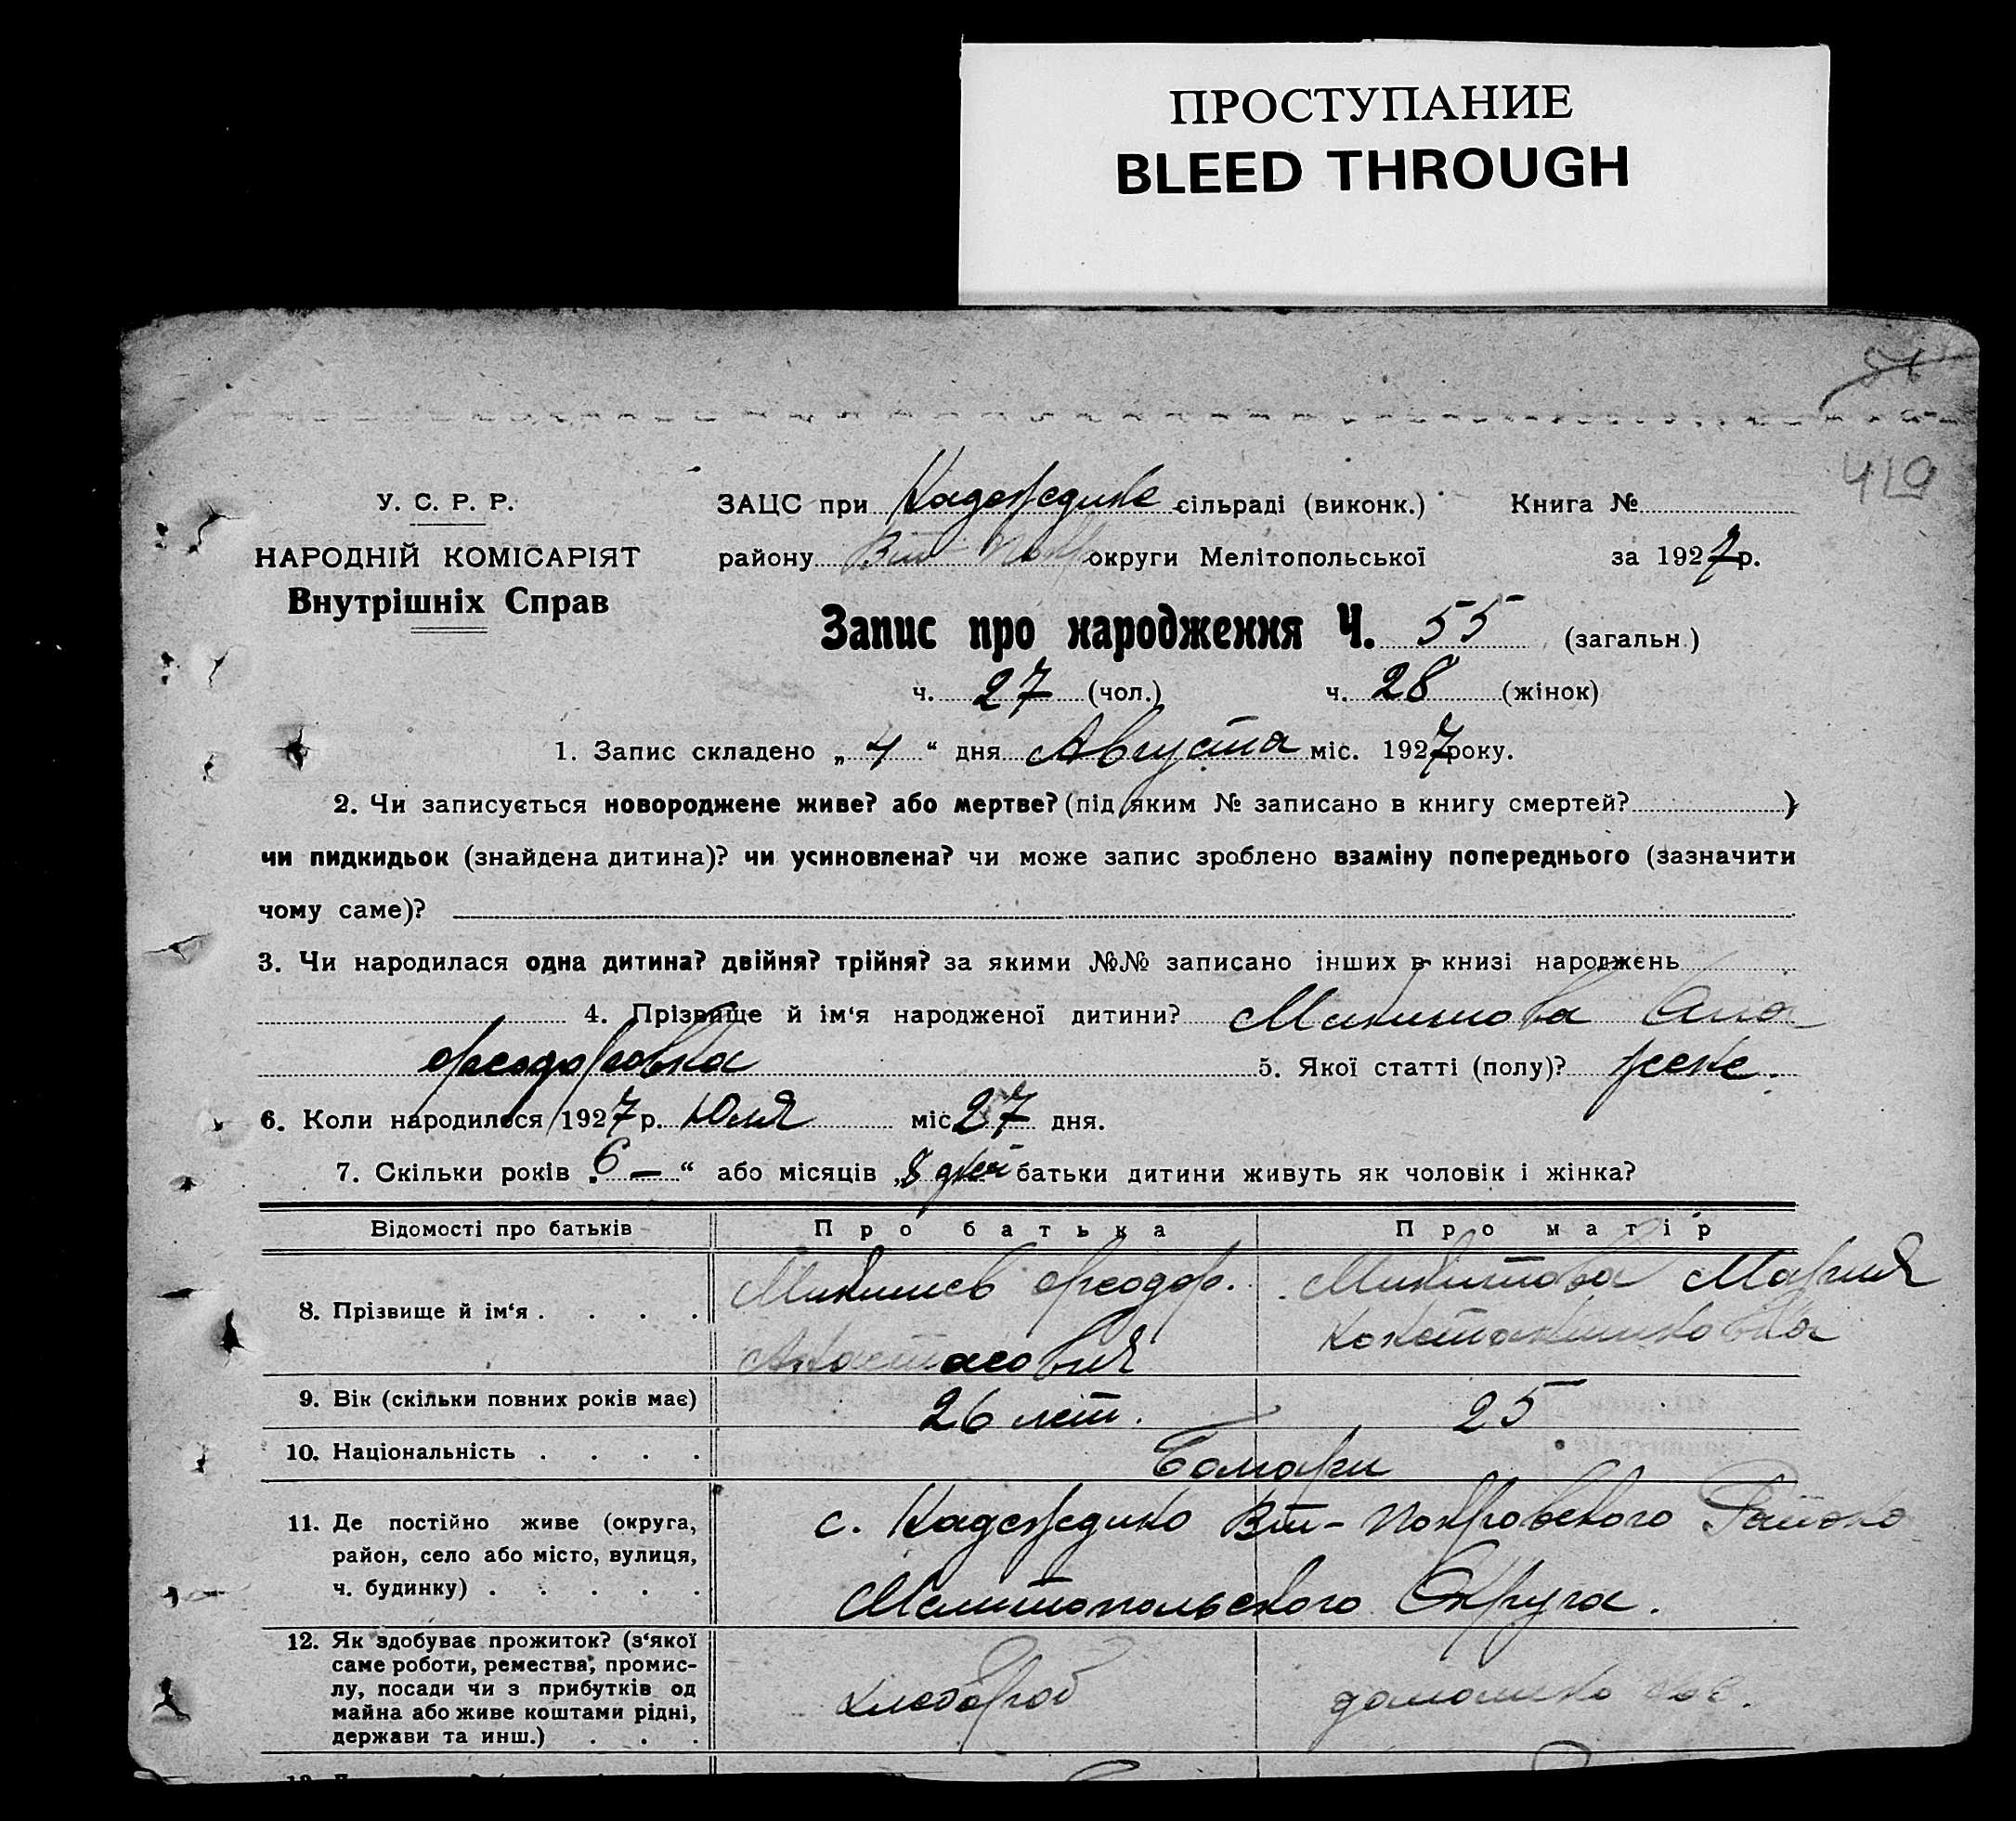 ПРОСТУПАНИЕ
BLEED THROUGH
51
419
У. С. Р. Р.
НАРОДНІЙ КОМІСАРІЯТ
Внутрішніх Справ
ЗАЦС при Надеждине сільраді (виконк.) Книга №
району Вт Покр округи Мелітопольської за 1927 р.
Запис про народження Ч. 55 (загальн.)
ч. 27 (чол.) ч. 28 (жінок)
1. Запис складено „4“ дня Августа міс. 1927 року.
2. Чи записується новороджене живе? або мертве? (під яким № записано в книгу смертей? )
чи пидкидьок (знайдена дитина)? чи усиновлена? чи може запис зроблено взаміну попереднього (зазначити
чому саме)?
3. Чи народилася одна дитина? двійня? трійня? за якими №№ записано інших в книзі народжєнь
4. Прізвище й ім‘я народженої дитини?
Феодоровна 5. Якої статті (полу)? женс.
6. Коли народилося 1927 р. Юля міс 27 дня.
7. Скільки років „6 —“ або місяців „8 дней батьки дитини живуть як чоловік і жінка?
Відомості про батьків Про батька Про матір
8. Прізвище й ім‘я . . . . Феодор. Мария
Константиновна
9. Вік (скільки повних років має) 26 лет. 25
10. Національність . . . . Болгары
11. Де постійно живе (округа, район, село або місто, вулиця, ч. будинку) . . . . . с. Надеждино Вт-Покровского Района
Мелитопольского Округа.
12. Як здобуває прожиток? (з‘якої
саме роботи, ремества, промис-
лу, посади чи з прибутків од
майна або живе коштами рідні,
держави та инш.) . . . хлебороб домашн хоз.